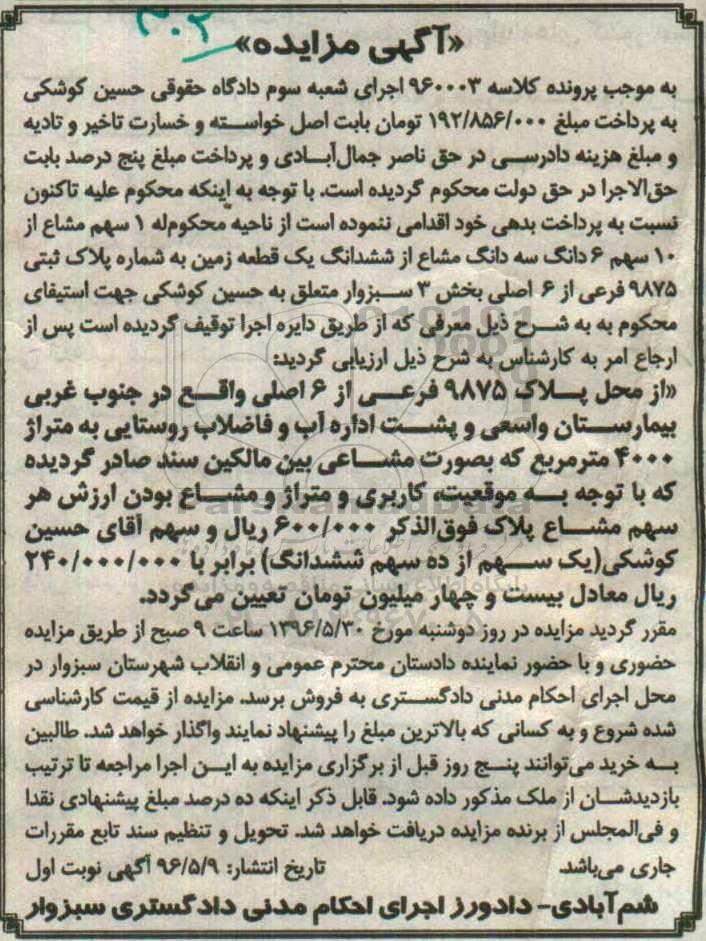 ۳۰۲
«آگهی مزایده»
به موجب پرونده کلاسه ۹۶۰۰۰۳ اجرای شعبه سوم دادگاه حقوقی حسین کوشکی
به پرداخت مبلغ ۱۹۲/۸۵۶/۰۰۰ تومان بابت اصل خواسته و خسارت تاخیر و تادیه
و مبلغ هزینه دادرسی در حق ناصر جمال‌آبادی و پرداخت مبلغ پنج درصد بابت
حق‌الاجرا در حق دولت محکوم گردیده است. با توجه به اینکه محکوم علیه تاکنون
نسبت به پرداخت بدهی خود اقدامی ننموده است از ناحیه محکوم‌له ۱ سهم مشاع از
۱۰ سهم ۶ دانگ سه دانگ مشاع از ششدانگ یک قطعه زمین به شماره پلاک ثبتی
۹۸۷۵ فرعی از ۶ اصلی بخش ۳ سبزوار متعلق به حسین کوشکی جهت استیفای
محکوم به به شرح ذیل معرفی که از طریق دایره اجرا توقیف گردیده است پس از
ارجاع امر به کارشناس به شرح ذیل ارزیابی گردید:
«از محل پلاک ۹۸۷۵ فرعی از ۶ اصلی واقع در جنوب غربی
بیمارستان واسعی و پشت اداره آب و فاضلاب روستایی به متراژ
۴۰۰۰ مترمربع که بصورت مشاعی بین مالکین سند صادر گردیده
که با توجه به موقعیت، کاربری و متراژ و مشاع بودن ارزش هر
سهم مشاع پلاک فوق‌الذکر ۶۰۰/۰۰۰ ریال و سهم آقای حسین
کوشکی(یک سهم از ده سهم ششدانگ) برابر با ۲۴۰/۰۰۰/۰۰۰
ریال معادل بیست و چهار میلیون تومان تعیین می‌گردد.
مقرر گردید مزایده در روز دوشنبه مورخ ۱۳۹۶/۵/۳۰ ساعت ۹ صبح از طریق مزایده
حضوری و با حضور نماینده دادستان محترم عمومی و انقلاب شهرستان سبزوار در
محل اجرای احکام مدنی دادگستری به فروش برسد. مزایده از قیمت کارشناسی
شده شروع و به کسانی که بالاترین مبلغ را پیشنهاد نمایند واگذار خواهد شد. طالبین
به خرید می‌توانند پنج روز قبل از برگزاری مزایده به این اجرا مراجعه تا ترتیب
بازدیدشان از ملک مذکور داده شود. قابل ذکر اینکه ده درصد مبلغ پیشنهادی نقدا
و فی‌المجلس از برنده مزایده دریافت خواهد شد. تحویل و تنظیم سند تابع مقررات
جاری می‌باشد. تاریخ انتشار: ۹۶/۵/۹ آگهی نوبت اول
شم‌آبادی- دادورز اجرای احکام مدنی دادگستری سبزوار